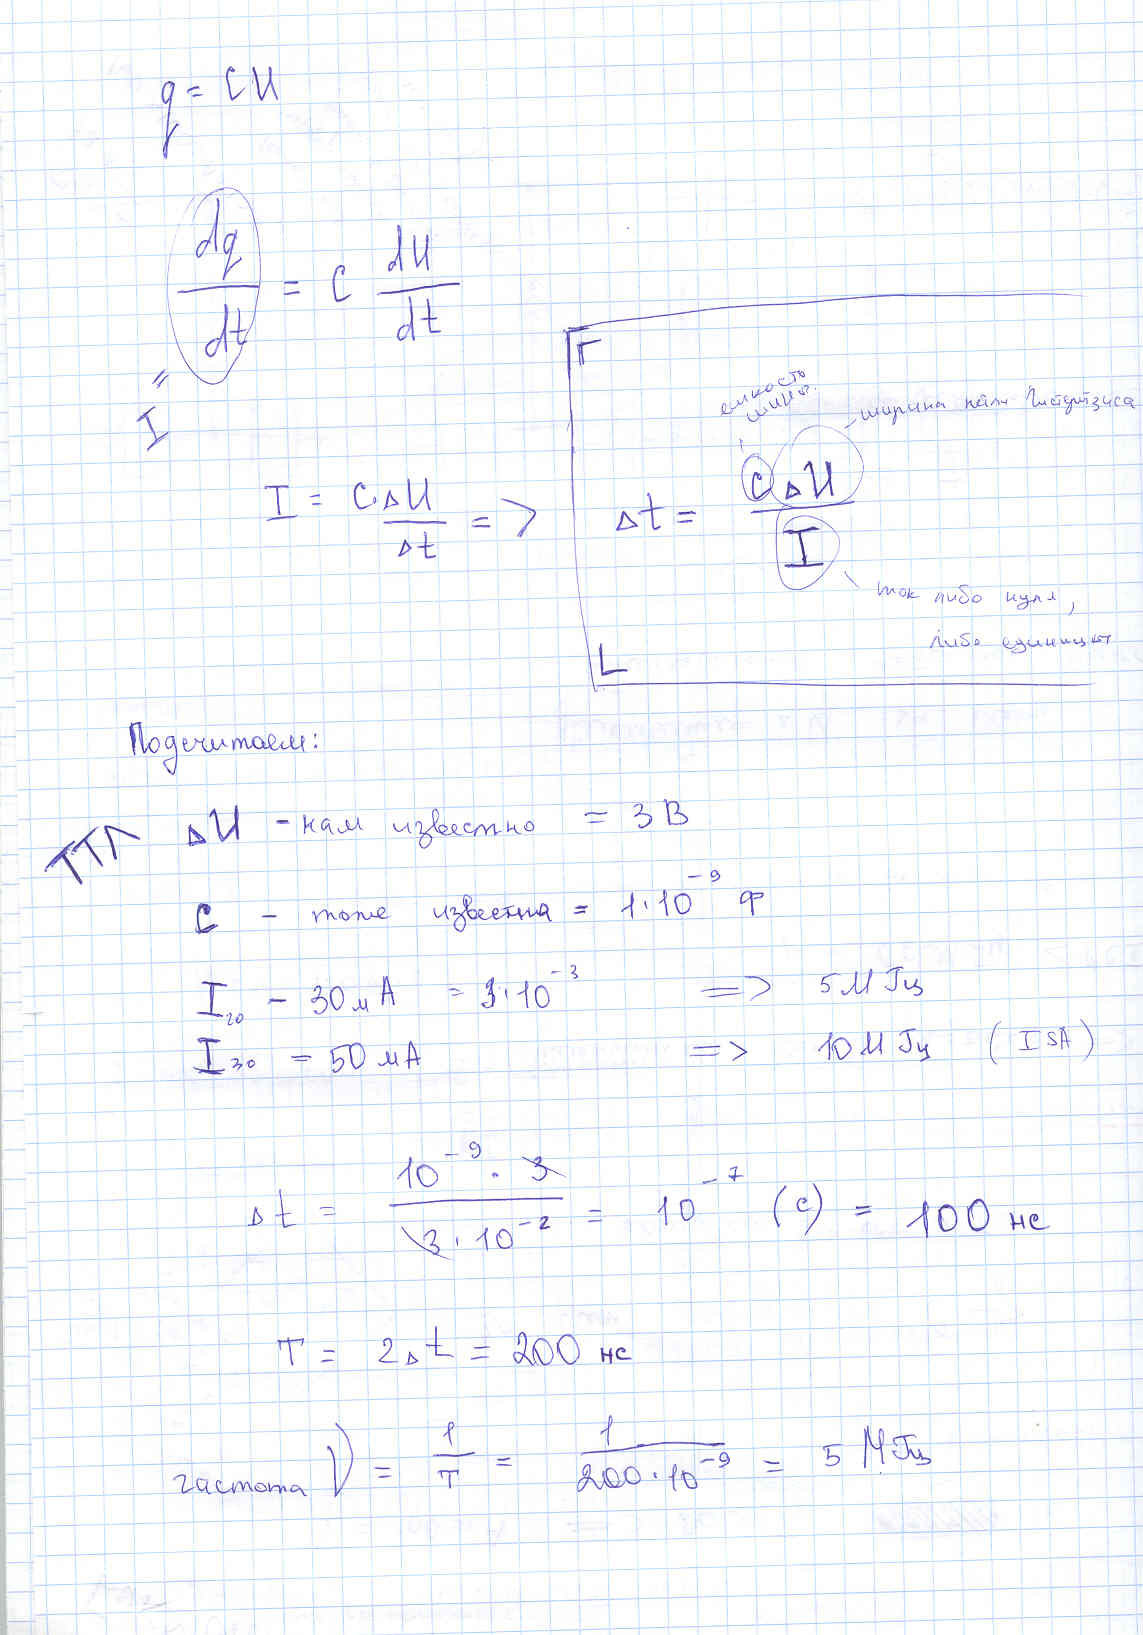 q = CU
dq/dt = C dU/dt
= I
I = C·ΔU/Δt =>
емкость шины
ширина петли Гистерезиса
Δt = CΔU/I
ток либо нуля,
либо единицы
Подсчитаем:
ТТЛ
ΔU - нам известно = 3 В
C - тоже известна = 1·10⁻⁹ Ф
I - 30 мА = 3·10⁻³ => 5 МГц
I = 50 мА => 10 МГц (ISA)
Δt = 10⁻⁹·3/3·10⁻² = 10⁻⁷ (с) = 100 нс
T = 2Δt = 200 нс
частота ν = 1/T = 1/200·10⁻⁹ = 5 МГц